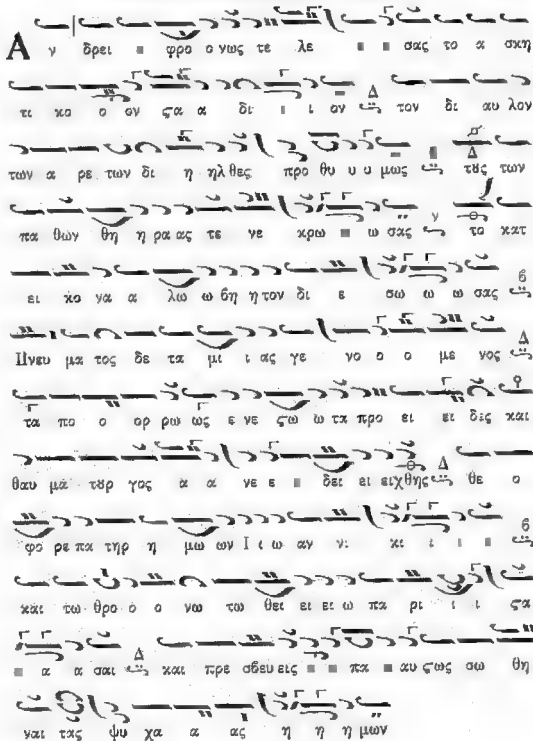 Α ν δρει ι φρο ο νως τε λε ε ε σας το α σκη
τι κο ο ον ϛα α δι ι ι ον Δ τον δι αυ λον
των α ρε των δι η ηλθες προ θυ υ ο μως Δ τȣς των
πα θων θη η ρα ας τε νε κρω ω ω σας ν το κατ
ει κο να α λω ω βη η τον δι ε σω ω ω σας ϐ
Πνευ μα τος δε τα μι ι ας γε νο ο ο με νος Δ
τα πο ο ορ ρω ως ε νε ϛω ω τα προ ει ει δες και
θαυ μα τȣρ γος α α νε ε ε δει ει ειχθης Δ θε ο
φο ρε πα τηρ η μω ων Ι ι ω αν νι κι ι ι ι ϐ
και τω θρο ο ο νω τω θει ει ει ει ω πα ρι ι ι ϛα
α α α σαι Δ και πρε σβευ εις ι ι πα αυ ϛως σω θη
ναι τας ψυ χα α ας η η η μων